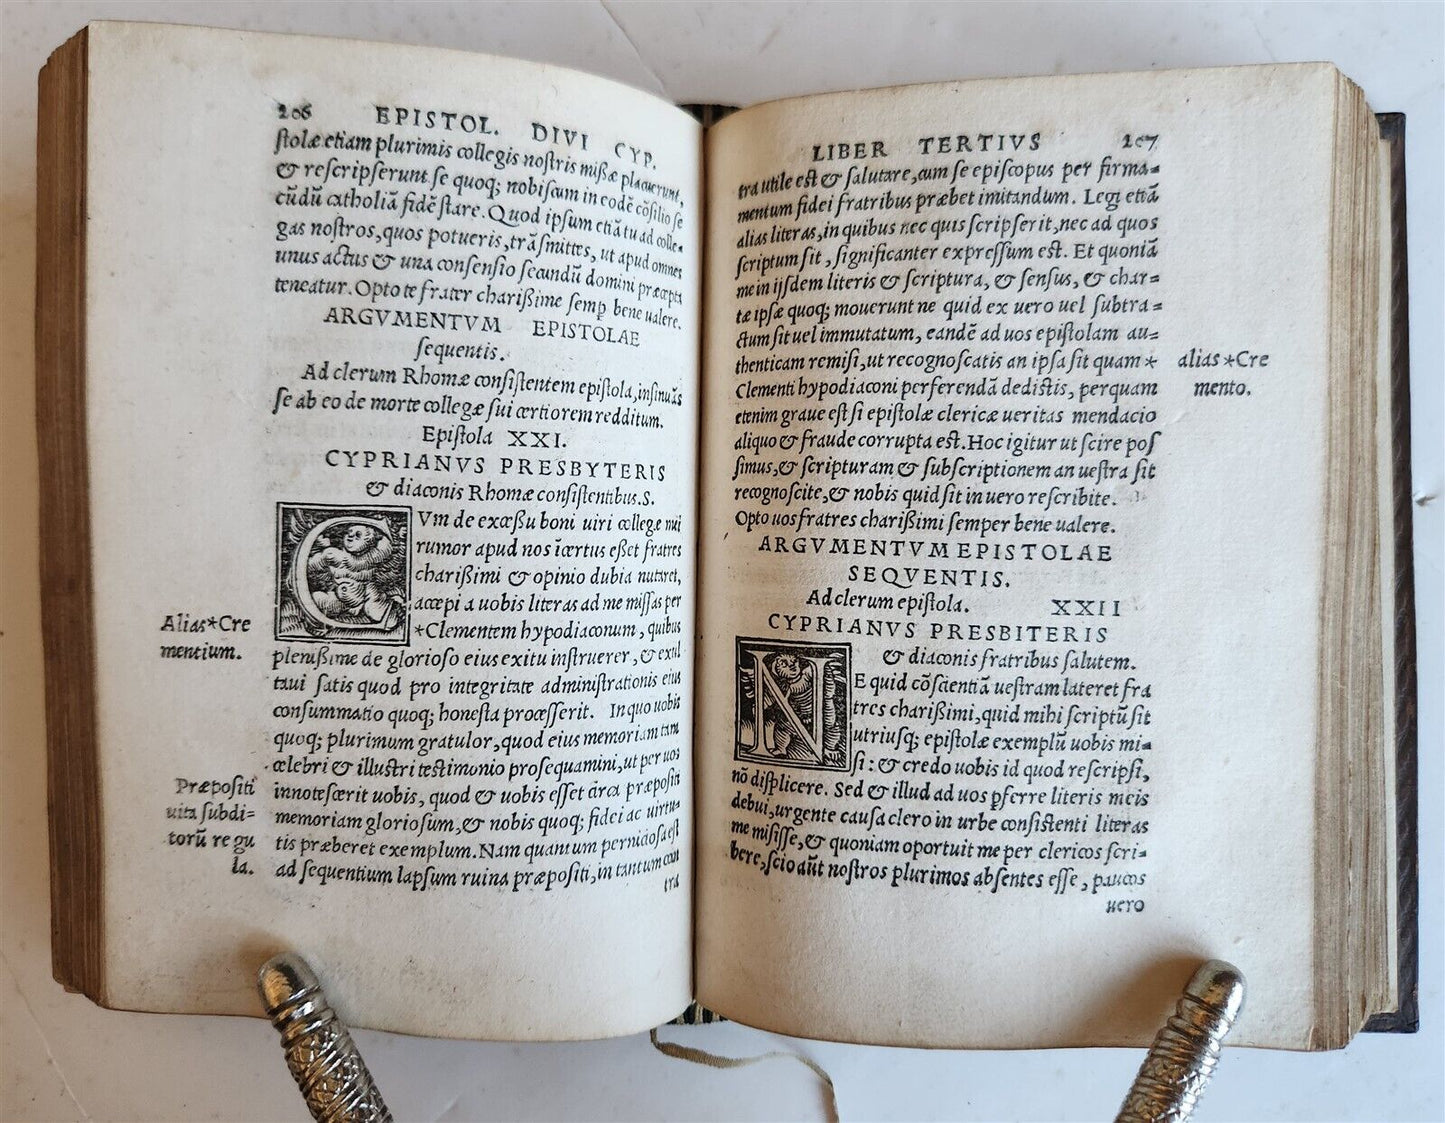 206 EPISTOL. DIVI CYP.
stolæ etiam plurimis collegis nostris missæ placuerunt,
& rescripserunt se quoq; nobiscum in eodē cōsilio se
cūdū catholiā fidē stare. Quod ipsum etiā tu ad colle=
gas nostros, quos potueris, trāsmittes, ut apud omnes
unus actus & una consensio secundū domini præcepta
teneatur. Opto te frater charißime semp bene ualere.
ARGVMENTVM EPISTOLAE
sequentis.
Ad clerum Rhomæ consistentem epistola, insinuās
se ab eo de morte collegæ sui certiorem redditum.
Epistola XXI.
CYPRIANVS PRESBYTERIS
& diaconis Rhomæ consistentibus. S.
CVm de excessu boni uiri collegæ mei
rumor apud nos īcertus eßet fratres
charißimi & opinio dubia nutaret,
accepi a uobis literas ad me missas per
Alias*Cre
*Clementem hypodiaconum, quibus
mentium.
plenißime de glorioso eius exitu instruerer, & exul
taui satis quod pro integritate administrationis eius
consummatio quoq; honesta processerit. In quo uobis
quoq; plurimum gratulor, quod eius memoriam tam
celebri & illustri testimonio prosequamini, ut per uos
Præpositi
innotescerit uobis, quod & uobis esset circa præpositi
uita subdi=
memoriam gloriosum, & nobis quoq; fidei ac uirtu=
torū regu
tis præberet exemplum. Nam quantum perniciosa est
la.
ad sequentium lapsum ruina præpositi, in tantum con
tra
LIBER TERTIVS 207
tra utile est & salutare, cum se episcopus per firma=
mentum fidei fratribus præbet imitandum. Legi etiā
alias literas, in quibus nec quis scripserit, nec ad quos
scriptum sit, significanter expressum est. Et quoniā
me in ijsdem literis & scriptura, & sensus, & char=
tæ ipsæ quoq; mouerunt ne quid ex uero uel subtra=
ctum sit uel immutatum, eandē ad uos epistolam au=
thenticam remisi, ut recognoscatis an ipsa sit quam *
alias *Cre
Clementi hypodiaconi perferendā dedistis, perquam
mento.
etenim graue est si epistolæ clericæ ueritas mendacio
aliquo & fraude corrupta est. Hoc igitur ut scire pos
simus, & scripturam & subscriptionem an uestra sit
recognoscite, & nobis quid sit in uero rescribite.
Opto uos fratres charißimi semper bene ualere.
ARGVMENTVM EPISTOLAE
SEQVENTIS.
Ad clerum epistola. XXII
CYPRIANVS PRESBITERIS
& diaconis fratribus salutem.
NE quid cōscientiā uestram lateret fra
tres charißimi, quid mihi scriptū sit
utriusq; epistolæ exemplū uobis mi=
si: & credo uobis id quod rescripsi,
nō displicere. Sed & illud ad uos pferre literis meis
debui, urgente causa clero in urbe consistenti literas
me misisse, & quoniam oportuit me per clericos scri=
bere, scio aūt nostros plurimos absentes esse, paucos
uero